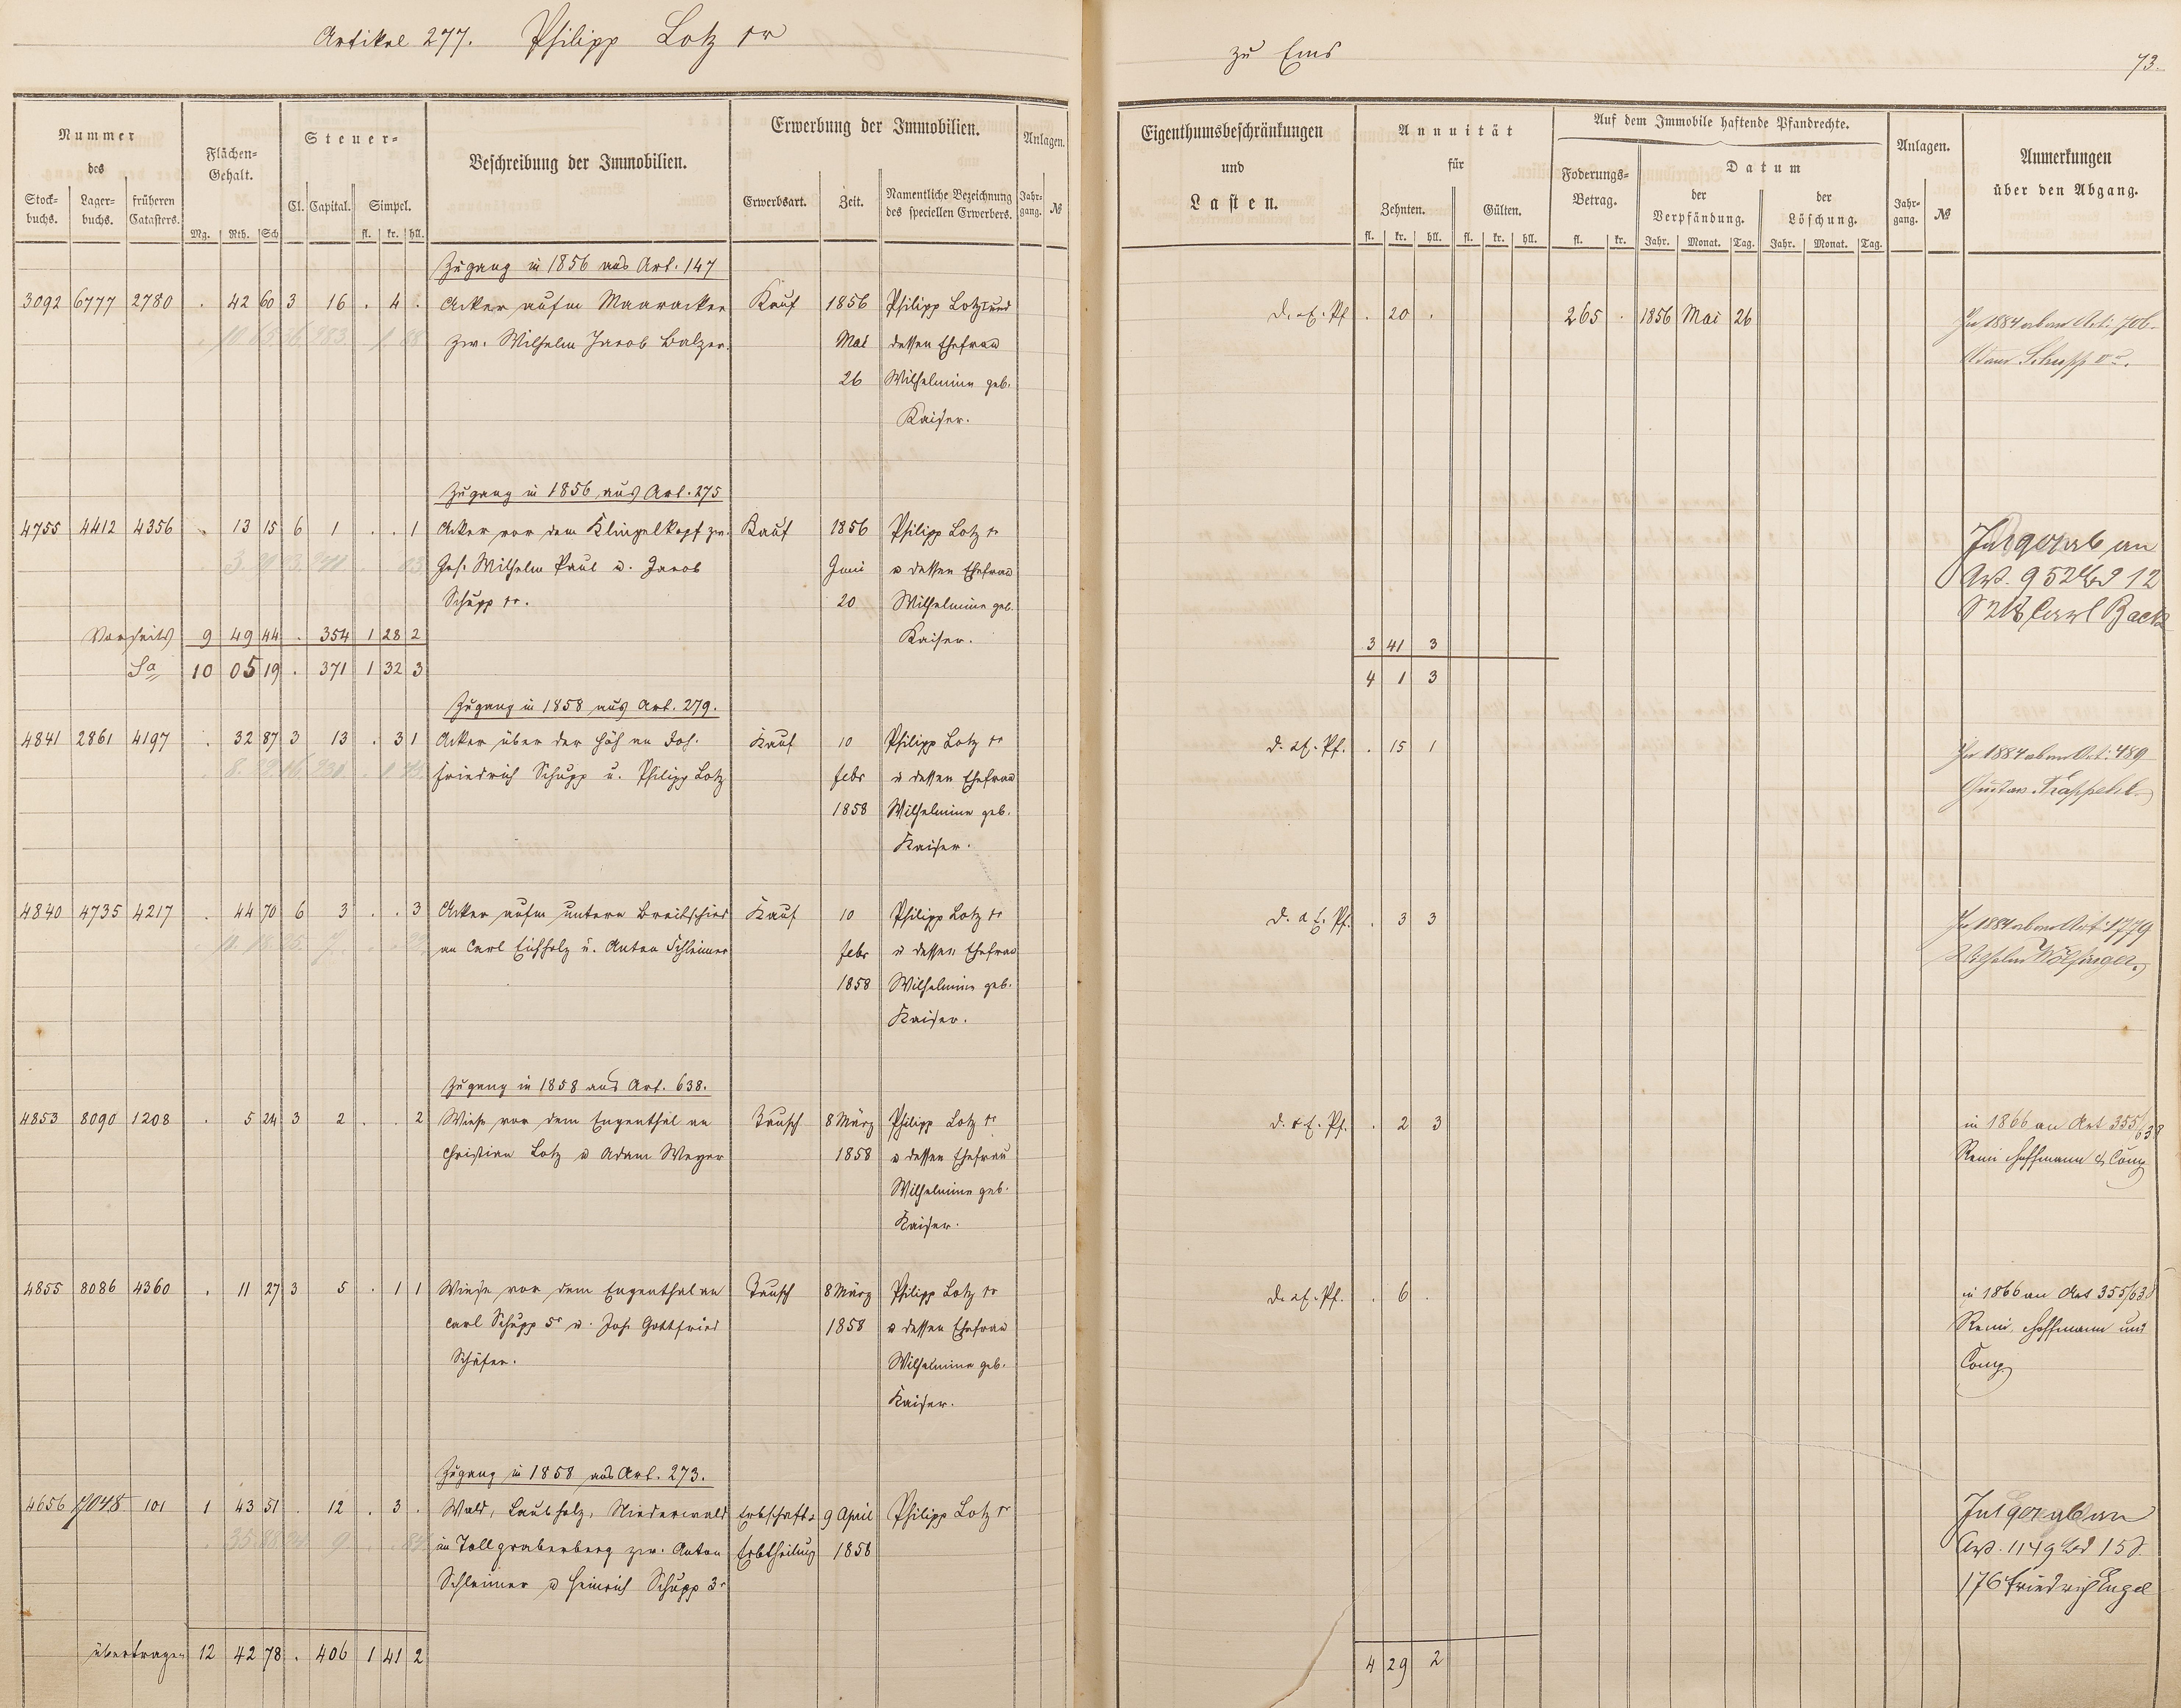 Artikel 277. Philipp Lotz 1r
zu Ems
73.
Nummer des
Stock-buchs. Lager-buchs. früheren Catasters.
Flächen-Gehalt.
Mg. Rth. Sch
Steuer-
Cl. Capital. Simpel.
fl. kr. hll.
Beschreibung der Immobilien.
Erwerbung der Immobilien.
Erwerbsart. Zeit. Namentliche Bezeichnung des speciellen Erwerbers.
Anlagen.
Jahr-gang. №
Eigenthumsbeschränkungen und Lasten.
Annuität für
Zehnten. Gülten.
fl. kr. hll. fl. kr. hll.
Auf dem Immobile haftende Pfandrechte.
Foderungs-Betrag.
fl. kr.
Datum
der Verpfändung. der Löschung.
Jahr. Monat. Tag. Jahr. Monat. Tag.
Anlagen.
Jahr-gang. №
Anmerkungen über den Abgang.
Zugang in 1856 aus Art. 147
3092 6777 2780 . 42 60 3 16 . 4 . Acker aufm Maaracker Kauf 1856 Philipp Lotz 1r und
zw. Wilhelm Jacob Balzer. Mai dessen Ehefrau
26 Wilhelmine geb.
Kaiser.
. 20 . 265 . 1856 Mai 26
In 1884 ab an Art: 706
Adam Schupp
Zugang in 1856 aus Art. 275
4755 4412 4356 . 13 15 6 1 . . 1 Acker vor dem Klingelkopf zw. Kauf 1856 Philipp Lotz 1r
Joh. Wilhelm Paul u. Jacob Juni u dessen Ehefrau
Schupp 1r. 20 Wilhelmine geb.
Kaiser.
ab an
Art. 952 Bd 12
Carl Back
Vorseits 9 49 44 . 354 1 28 2
3 41 3
Sa 10 05 19 . 371 1 32 3
4 1 3
Zugang in 1858 aus Art. 279.
4841 2861 4197 . 32 87 3 13 . 3 1 Acker über der Höh an Joh. Kauf 10 Philipp Lotz 1r
Friedrich Schupp u. Philipp Lotz febr u dessen Ehefrau
1858 Wilhelmine geb.
Kaiser.
. 15 1
In 1884 ab an Art: 489
Gustav
4840 4735 4217 . 44 70 6 3 . . 3 Acker aufm untern Breitschied Kauf 10 Philipp Lotz 1r
an Carl Eichholz u. Anton Schleimer febr u dessen Ehefrau
1858 Wilhelmine geb.
Kaiser.
. 3 3
In 1884 ab an Art: 1779
Wilhelm Wölfinger.
Zugang in 1858 aus Art. 638.
4853 8090 1208 . 5 24 3 2 . . 2 Wiese vor dem Engenthal an Tausch 8 März Philipp Lotz 1r
Christian Lotz u Adam Weyer 1858 u dessen Ehefrau
Wilhelmine geb.
Kaiser.
. 2 3
in 1866 an Art 355/638
Remi Hoffmann & Comp
4855 8086 4360 . 11 27 3 5 . 1 1 Wiese vor dem Engenthal an Tausch 8 März Philipp Lotz 1r
Carl Schupp 5r u. Joh. Gottfried 1858 u dessen Ehefrau
Schäfer. Wilhelmine geb.
Kaiser.
. 6 .
in 1866 an Art 355/638
Remi, Hoffmann und
Comp
Zugang in 1858 aus Art. 273.
4656 7048 101 1 43 51 . 12 . 3 . Wald, Laubholz, Niederwald Erbschaft u 9 April Philipp Lotz 1r
im Tollgrabenberg zw. Anton Erbtheilung 1858
Schleimer u Heinrich Schupp 3r
ab an
Art. 1149 Bd 15 S.
176 Friedrich Engel
übertragen 12 42 78 . 406 1 41 2
4 29 2